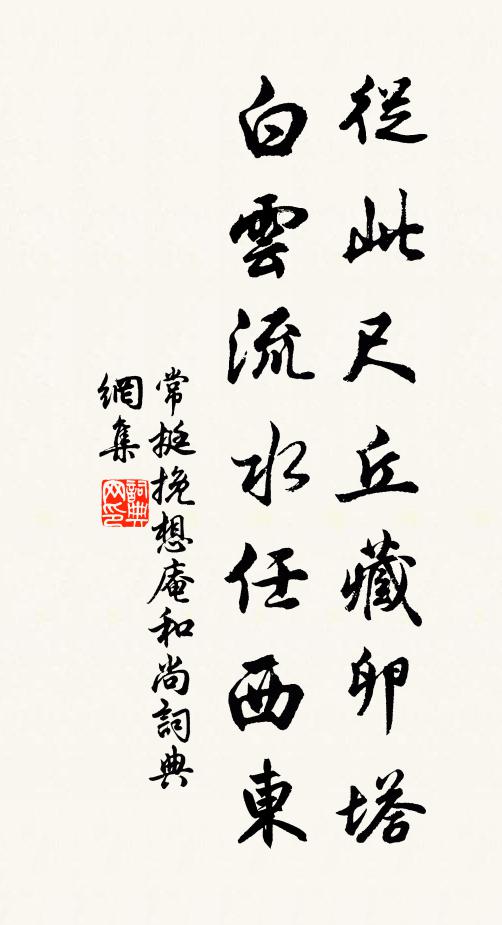 從此尺丘藏卵塔
白雲流水任西東
常挺挽想庵和尚詞典
網集
詞典網印